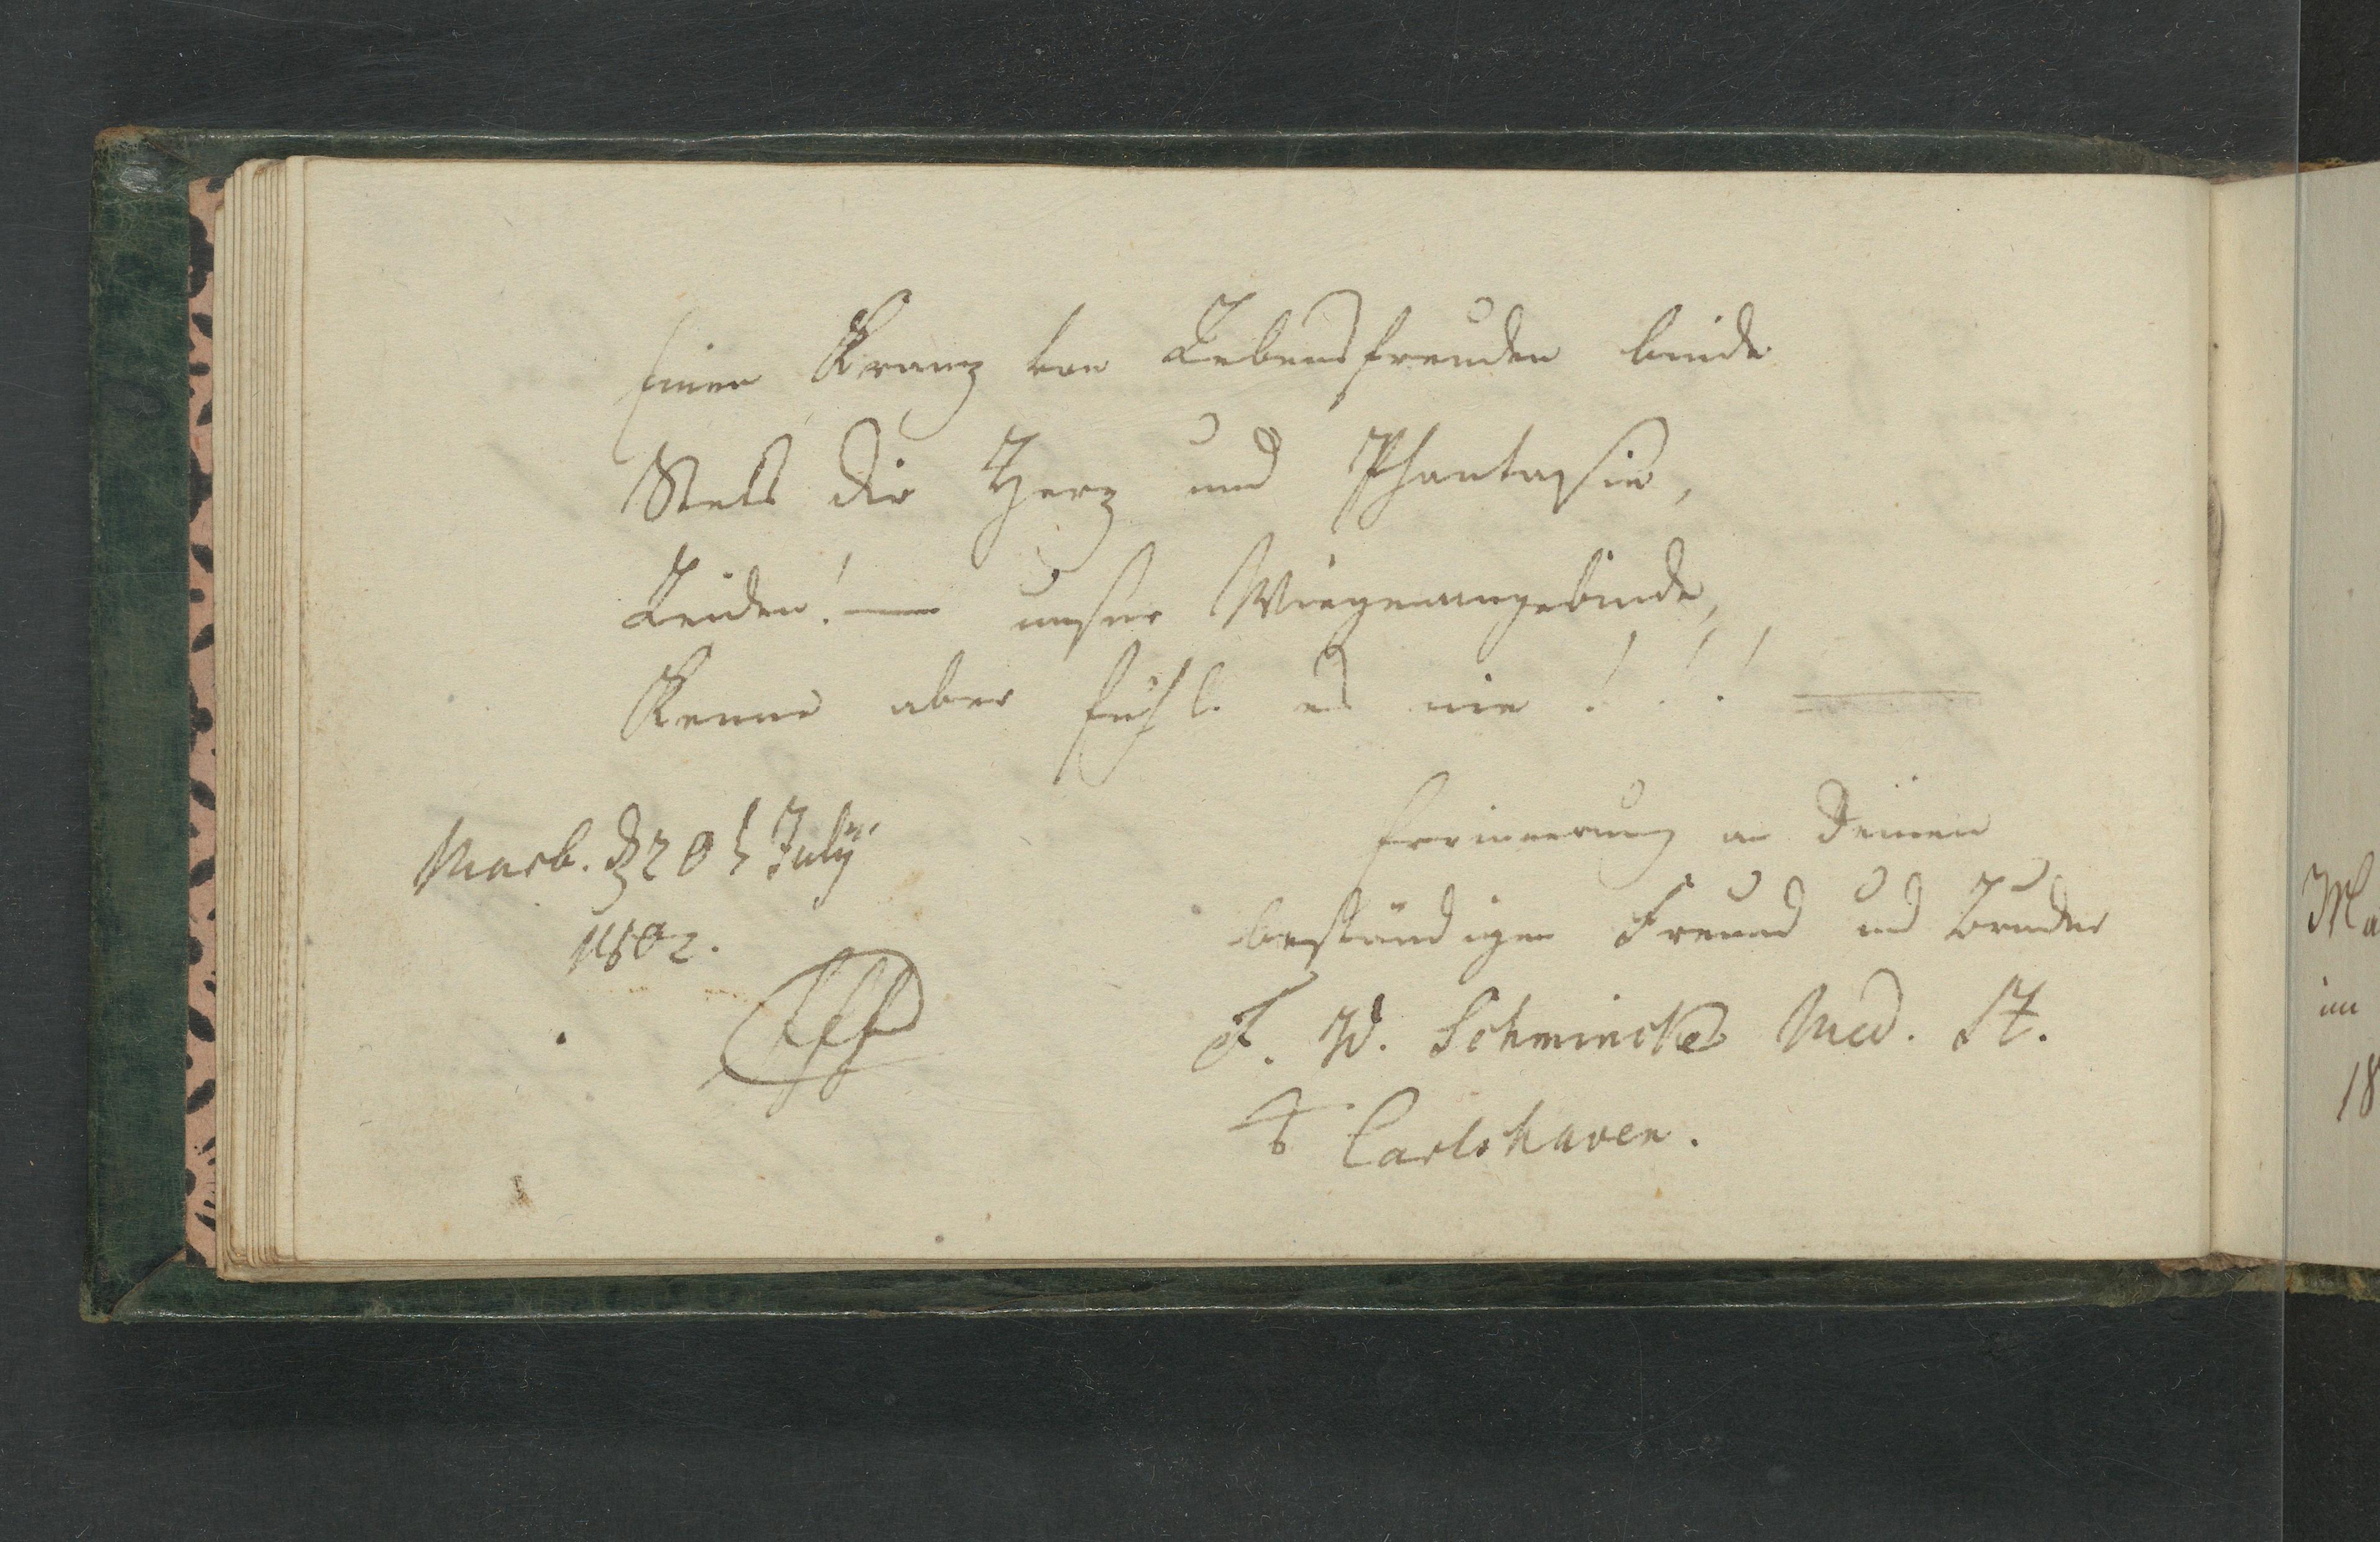 Einen Kranz von Lebensfreuden binde
Stets dir Herz und Phantasie,
Leiden! — unser Wiegenangebinde,
Kenne aber fühl es nie!!! —
Marb. d 20 July
1802.
Erinnerung an Deinen
beständigen Freund und Bruder
F. W. Schmincke Med. St.
Carlshaven.
Ma
im
18